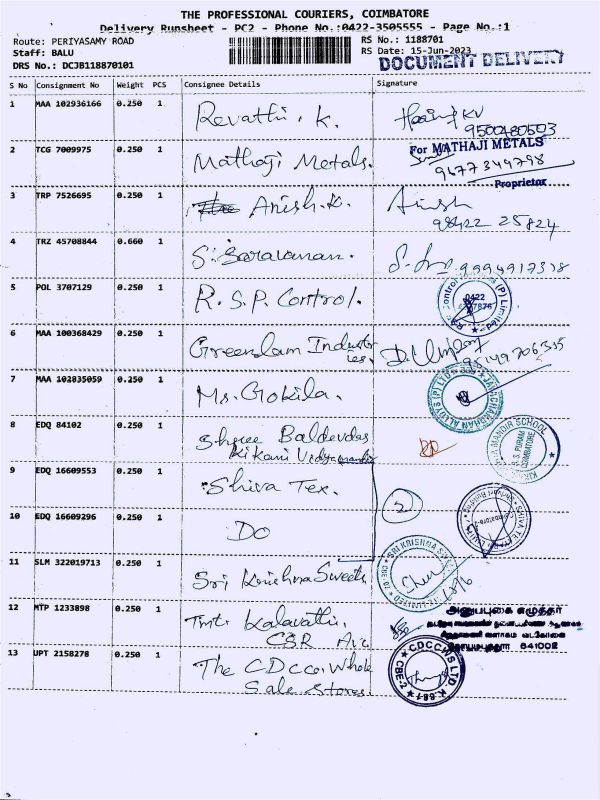 THE PROFESSIONAL COURIERS, COIMBATORE
Delivery Runsheet - PC2 - Phone No.:0422-3505555 - Page No.:1
Route: PERIYASAMY ROAD
RS No.: 1188701
Staff: BALU
RS Date: 15-Jun-2023
DRS No.: DCJB118870101
DOCUMENT DELIVERY
S No Consignment No Weight PCS Consignee Details Signature
1 MAA 102936166 0.250 1 Revathi. K. KV
9500480503
2 TCG 7009975 0.250 1 Mathaji Metals. For MATHAJI METALS
9677349798
Proprietor
3 TRP 7526695 0.250 1 Anish.K. Anish
98422 25824
4 TRZ 45708844 0.660 1 S. Saravanan. 9994917318
5 POL 3707129 0.250 1 R.S.P. Control. Control (P) Limited
0422
6 MAA 100368429 0.250 1 Greenlam Industries.
7 MAA 102835059 0.250 1 Ms. Gokila. ALLOYS (P) LTD
8 EDQ 84102 0.250 1 Shree Baldevdas
Kikani Vidyamandir
MANDIR SCHOOL
R. S. PURAM
COIMBATORE
9 EDQ 16609553 0.250 1 Shiva Tex. 2
10 EDQ 16609296 0.250 1 DO
11 SLM 322019713 0.250 1 Sri Krishna Sweets SRI KRISHNA
12 MTP 1233898 0.250 1 Tmt. Kalavathi,
CBR
641002
13 UPT 2158278 0.250 1 The CDCCo. Whole
Sale Stores
CDCCWS LTD
CBE-2
K.881